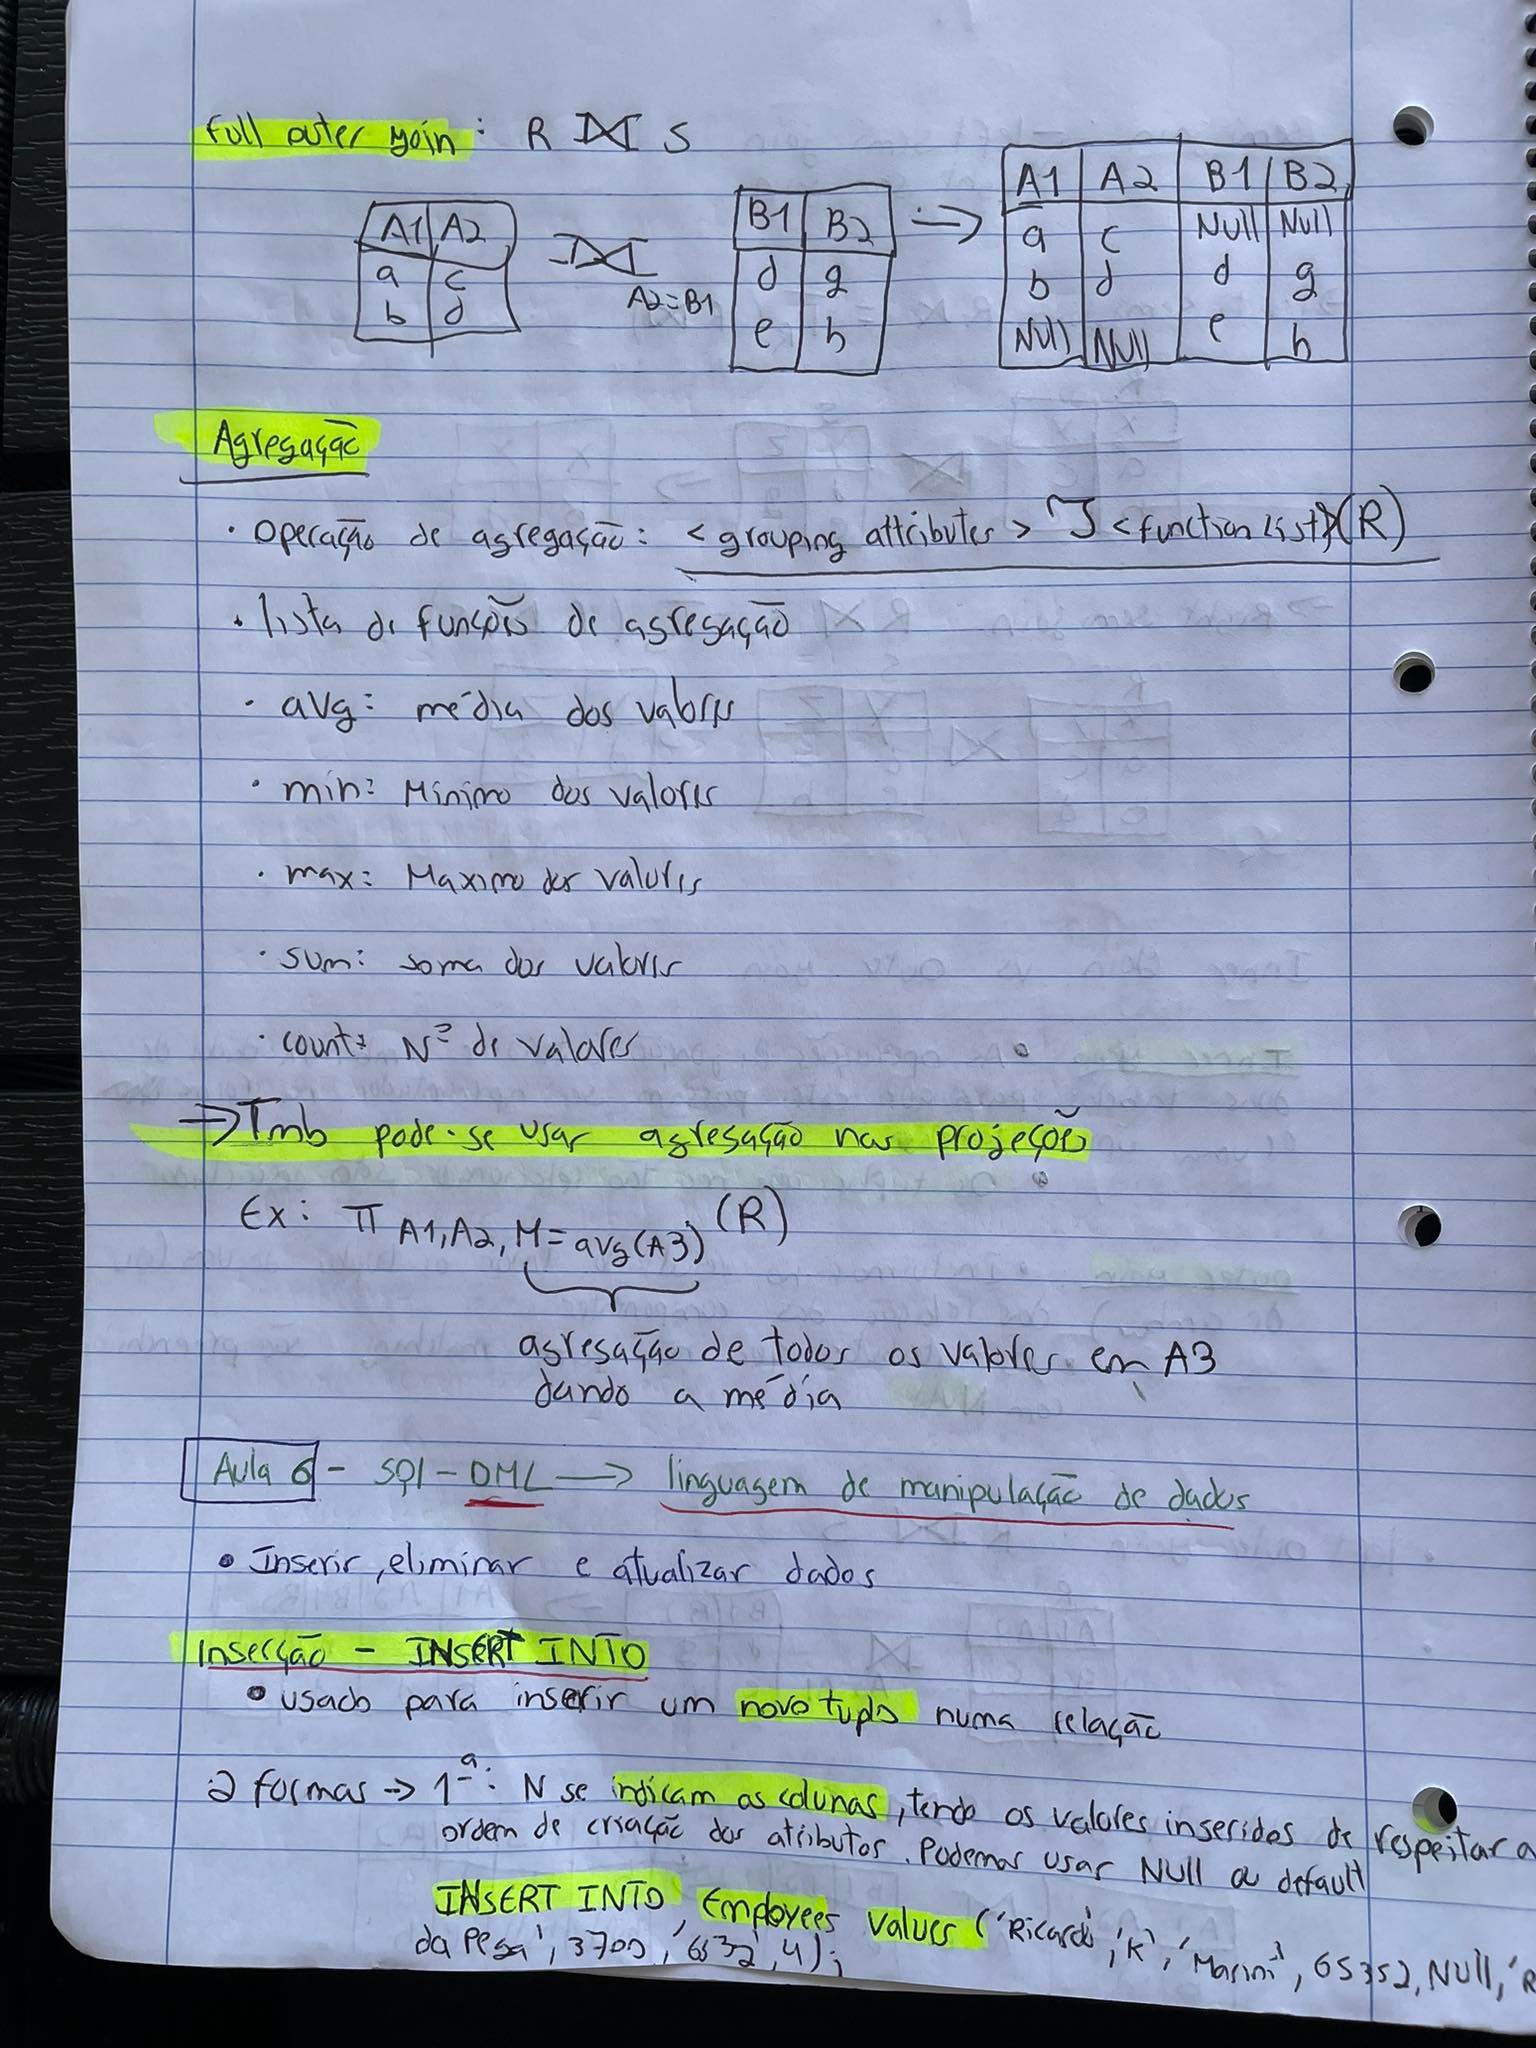 Full outer join: R ⟗ S
A1 A2
a c
b d
⟗ A2=B1
B1 B2
d g
e h
=>
A1 A2 B1 B2
a c Null Null
b d d g
Null Null e h
Agregação
· Operação de agregação: <grouping attributes> ℑ <function list>(R)
· lista de funções de agregação
· avg: média dos valores
· min: Mínimo dos valores
· max: Maximo dos valores
· sum: soma dos valores
· count: Nº de valores
=> Tmb pode-se usar agregação nas projeções
Ex: π A1, A2, M = avg(A3) (R)
agregação de todos os valores em A3
dando a média
Aula 6 - SQl - DML → linguagem de manipulação de dados
• Inserir, eliminar e atualizar dados
Inserção - INSERT INTO
• usado para inserir um novo tuplo numa relação
2 formas → 1ª: N se indicam as colunas, tendo os valores inseridos de respeitar a
ordem de criação dos atributos. Podemos usar Null ou default
INSERT INTO Employees Values ('Ricardo', 'K', 'Marini', 65352, Null, 'R
da Pega', 3700, '6532', 4);